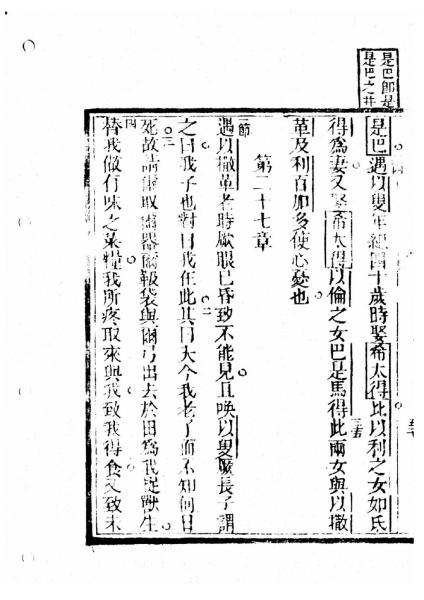 是巴卽是
是巴之井
是巴遇以叟年紀四十歲時娶希太得比以利之女如氐
三五
得爲妻又娶希太得以倫之女巴是馬得此兩女與以撒
革及利百加多使心愁也
第二十七章
節
遇以撒革老時厥眼已昏致不能見且喚以叟厥長子謂
二
之曰我子也對曰我在此其曰夫今我老了而不知何日
三
死故請爾取爾器爾報袋與爾弓出去於田爲我捉獸生
四
替我做有味之菜糧我所疼取來與我致我得食又致未